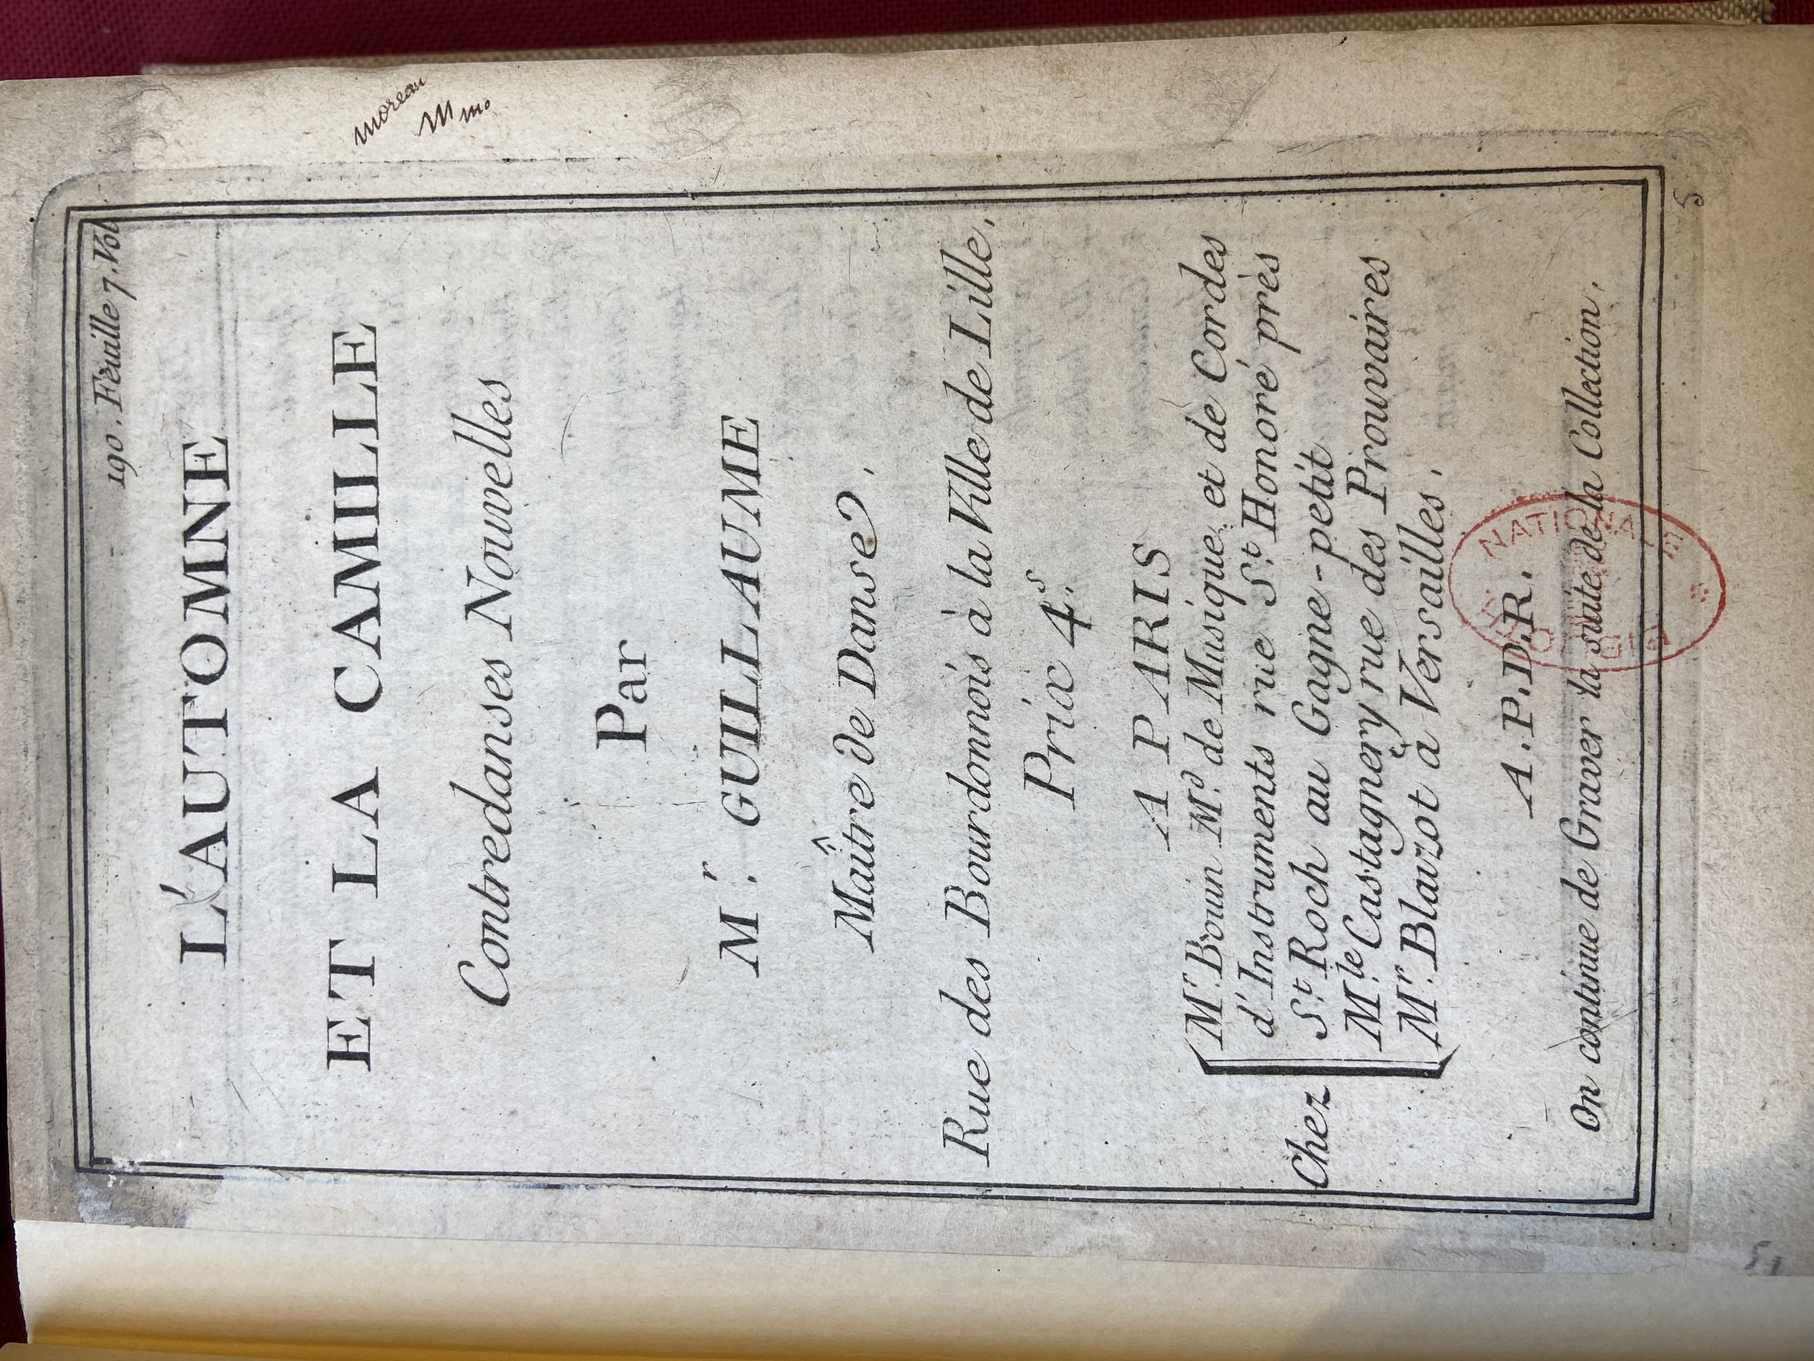 moreau
190. Feuille 7. Vol
L'AUTOMNE
ET LA CAMILLE
Contredanses Nouvelles
Par
Mr. GUILLAUME
Maître de Danse,
Rue des Bourdonnois à la Ville de Lille,
Prix 4s.
A PARIS
Chez
Mr. Bouin Md. de Musique, et de Cordes
d'Instruments rue St. Honoré près
St. Roch au Gagne-petit
Mlle. Castagnery rue des Prouvaires
Mr. Blaizot à Versailles.
A.P.D.R.
On continue de Graver la suite de la Collection.
NATIONALE
5
51